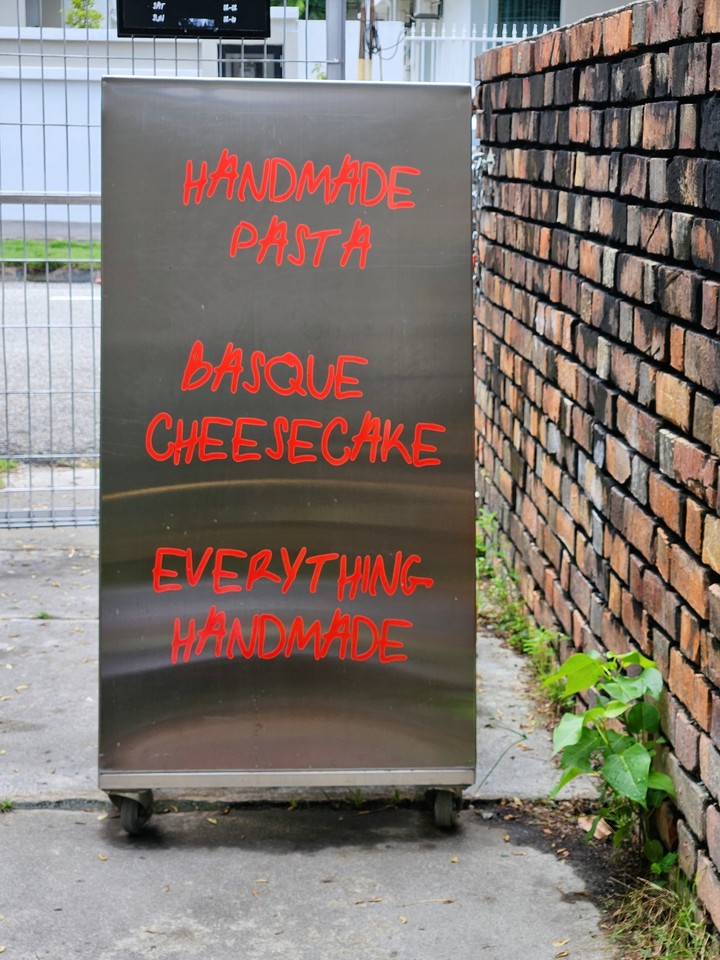 SAT
SUN
HANDMADE
PASTA
BASQUE
CHEESECAKE
EVERYTHING
HANDMADE